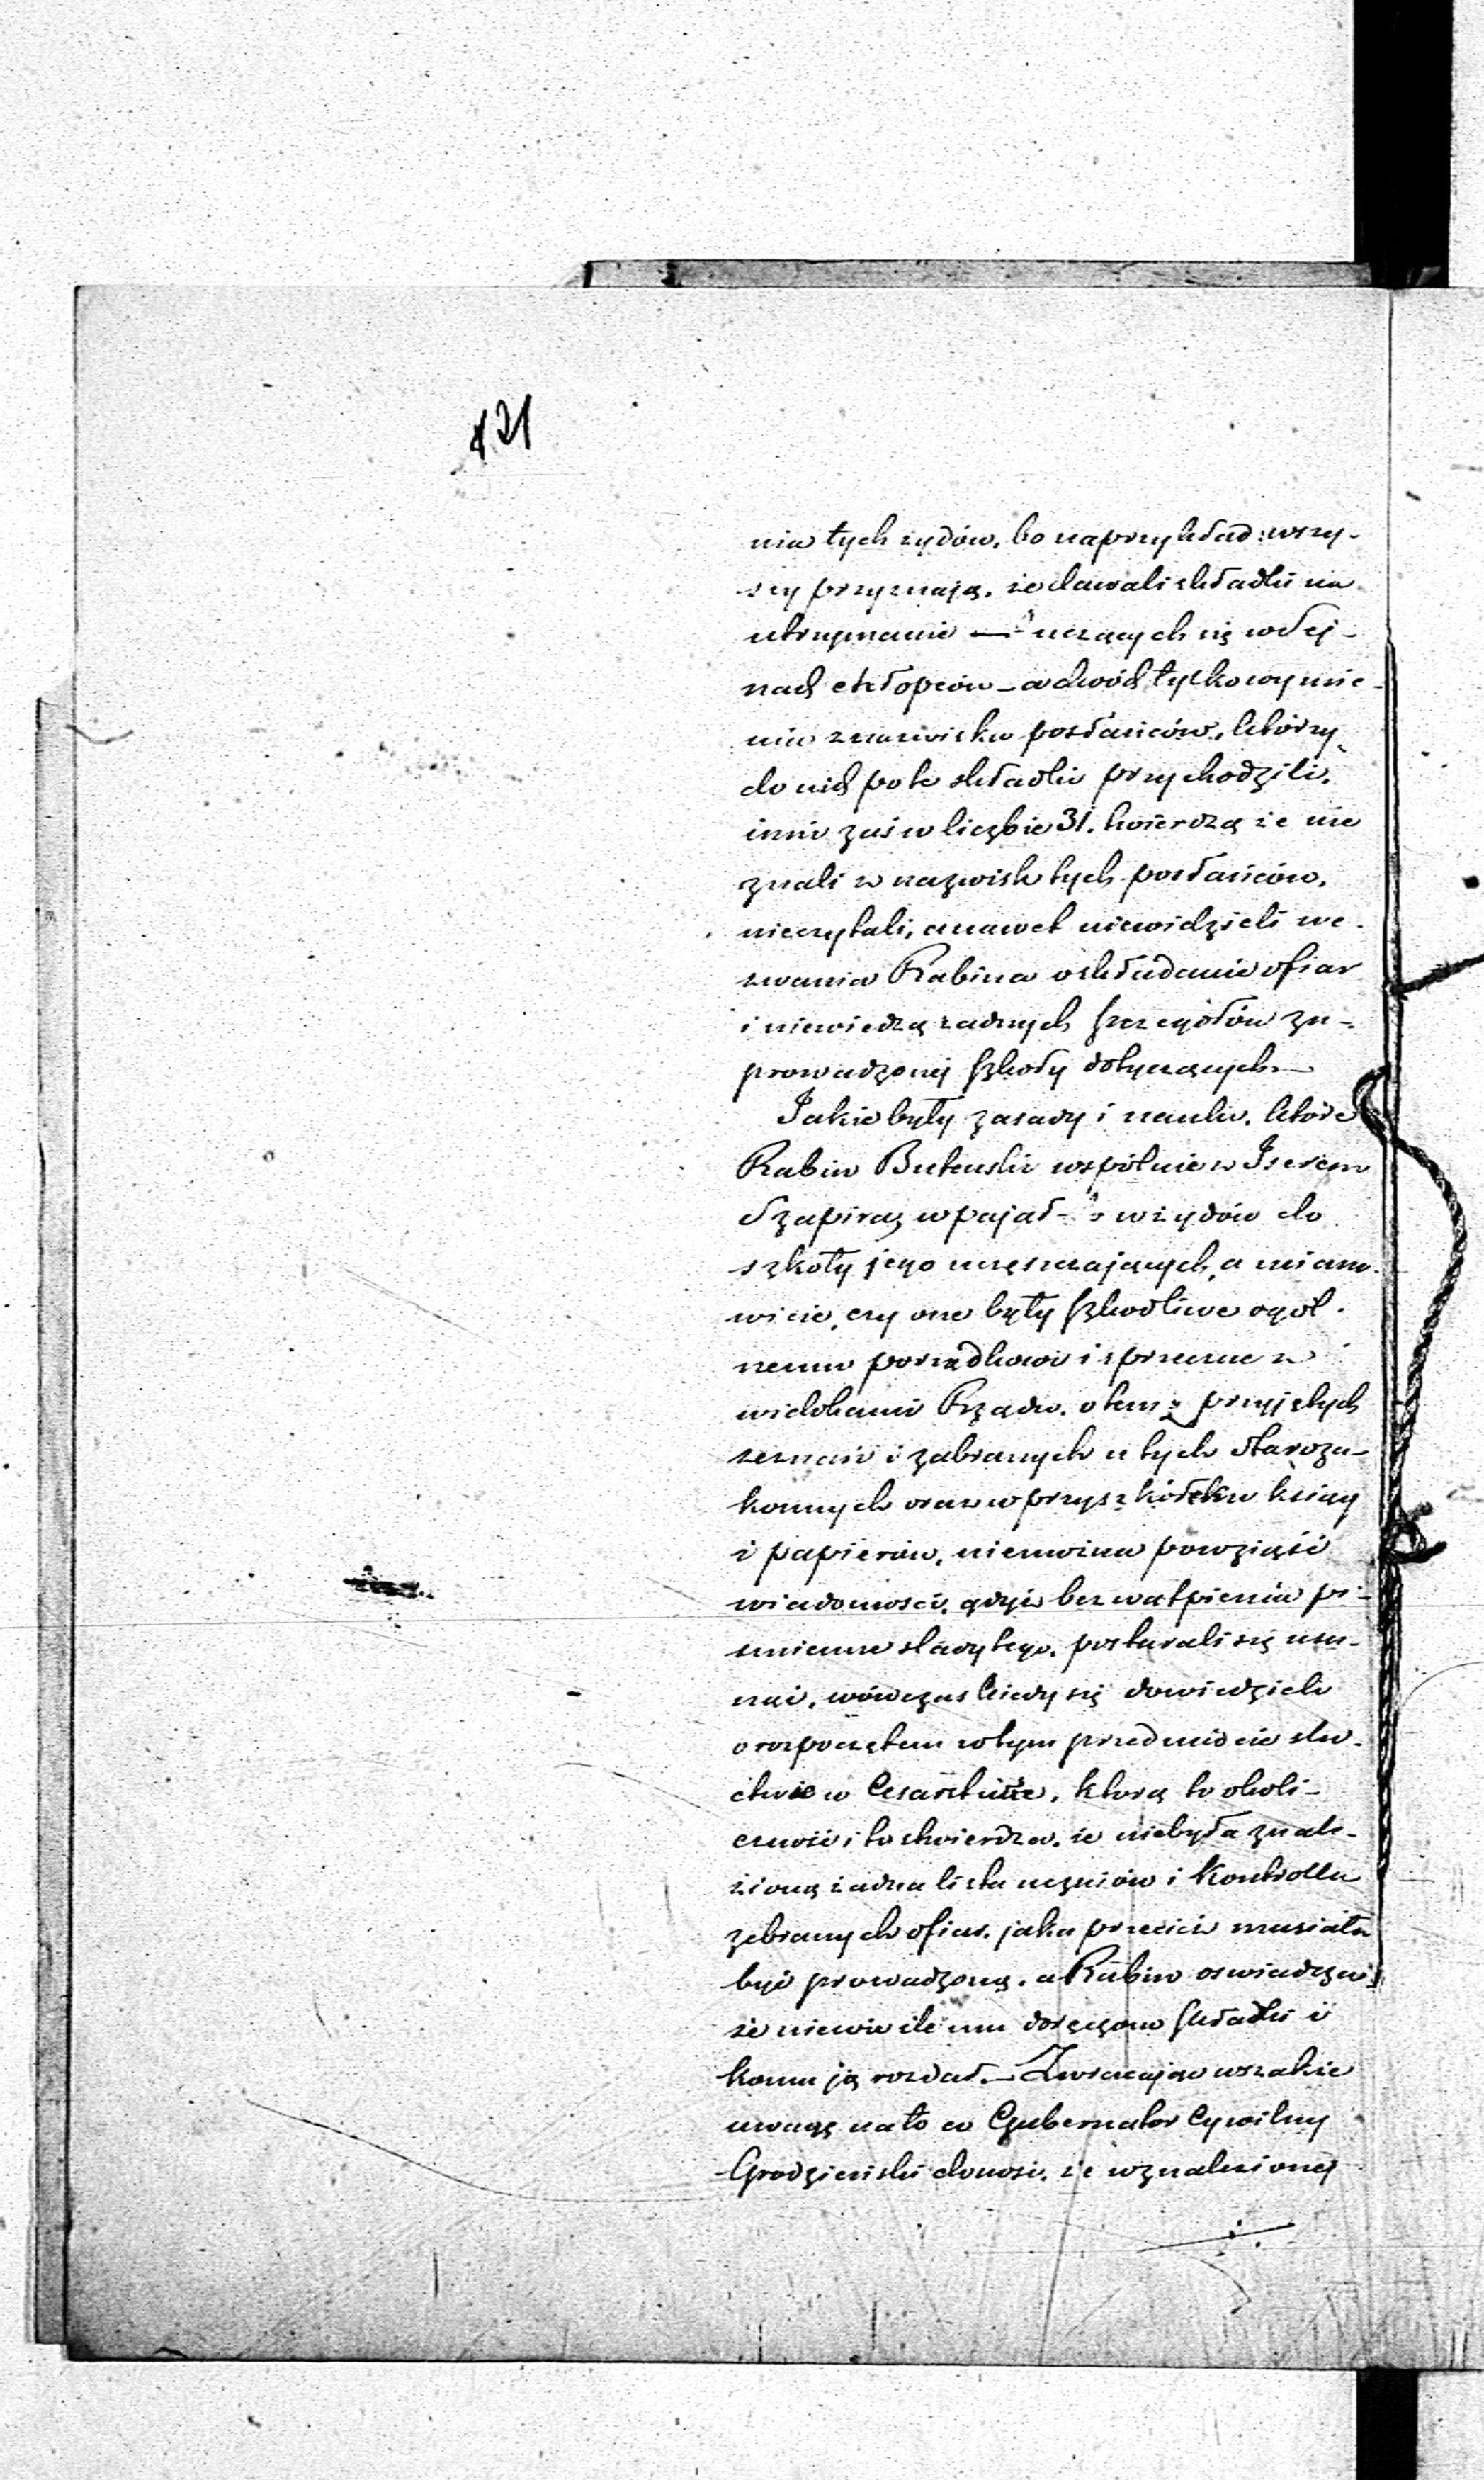 121
nia tych żydów, bo naprzykład: wszy-
scy przyznają, że dawali składki na
utrzymanie — uczących się w Sej-
nach chłopców – a dwóch tylko wymie-
nia z nazwiska posłańców, którzy
do nich po te składki przychodzili,
inni zaś w liczbie 31. twierdzą że nie
znali z nazwisk tych posłańców,
nieczytali, a nawet niewidzieli we-
zwania Rabina o składanie ofiar
i niewiedzą żadnych szczegółów za-
prowadzonej szkoły dotyczących. —
Jakie były zasady i nauki, które
Rabin Butenski wspólnie z Iserem
Szapirą wpajał w żydów do
szkoły jego uczęszczających, a miano-
wicie, czy one były szkodliwe ogól-
nemu porządkowi i sprzeczne z
widokami Rządu, o tem z przyjętych
zeznań i zabranych u tych Staroza-
konnych oraz w przyszkółku ksiąg
i papierów, niemożna powziąść
wiadomości, gdyż bez wątpienia pi-
śmienne ślady tego, postarali się usu-
nąć, wówczas kiedy się dowiedzieli
o rozpoczętem w tym przedmiocie śle-
dztwie w Cesarstwie, którą to okoli-
czność i to stwierdza, że niebyła znale-
zioną żadna lista uczniów i Kontrolla
zebranych ofiar, jaka przecież musiała
być prowadzoną, a Rabin oświadcza,
że niewie ile mu doręczono składki i
komu ją rozdał. — Zwracając wszakże
uwagę na to co Gubernator Cywilny
Grodzieński donosi, że w znalezionej